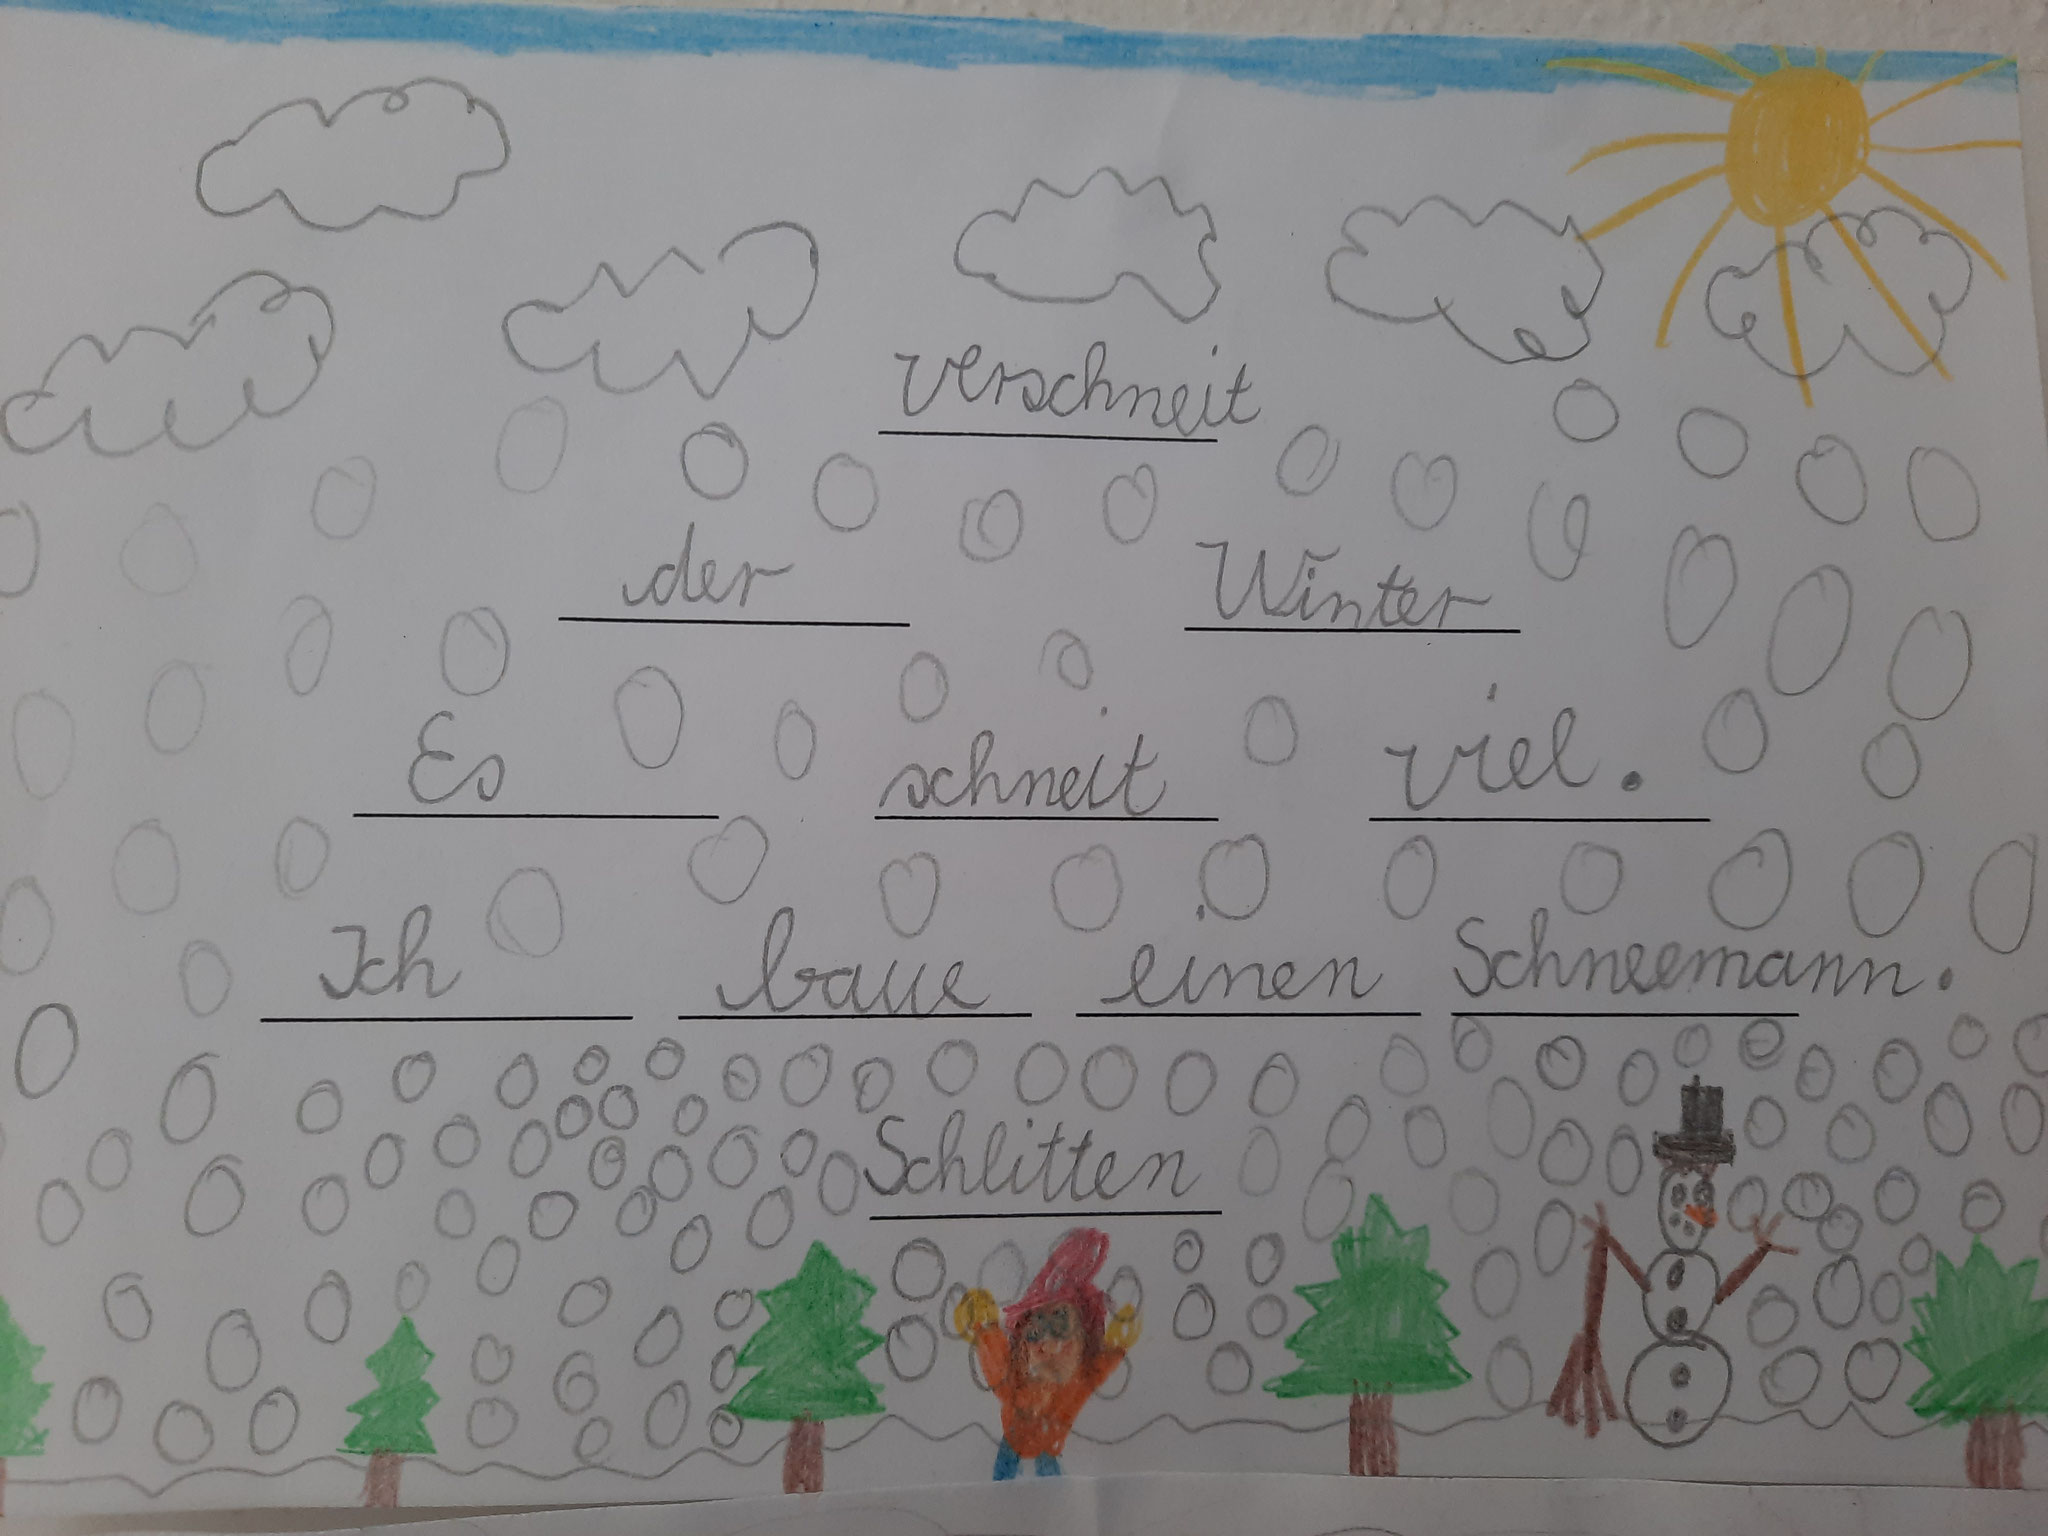 verschneit
der Winter
Es schneit viel.
Ich baue einen Schneemann.
Schlitten